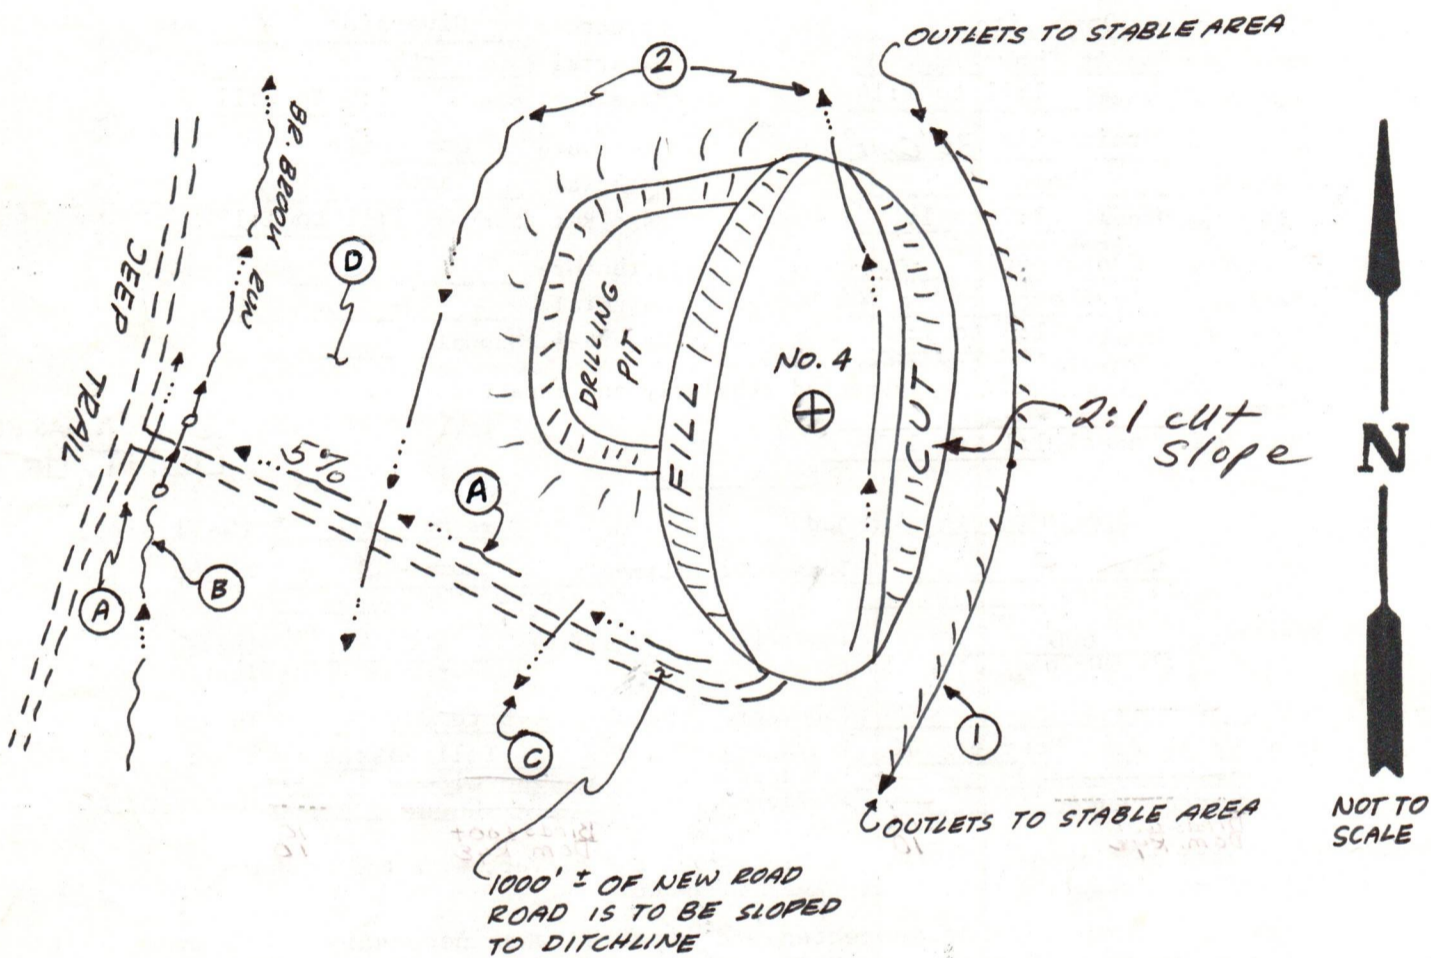 OUTLETS TO STABLE AREA
2
BR. BROOH RUN
JEEP TRAIL
D
DRILLING
PIT
NO. 4
FILL
CUT
2:1 cut
Slope
N
5%
A
A
B
C
1
OUTLETS TO STABLE AREA
NOT TO
SCALE
1000' ± OF NEW ROAD
ROAD IS TO BE SLOPED
TO DITCHLINE